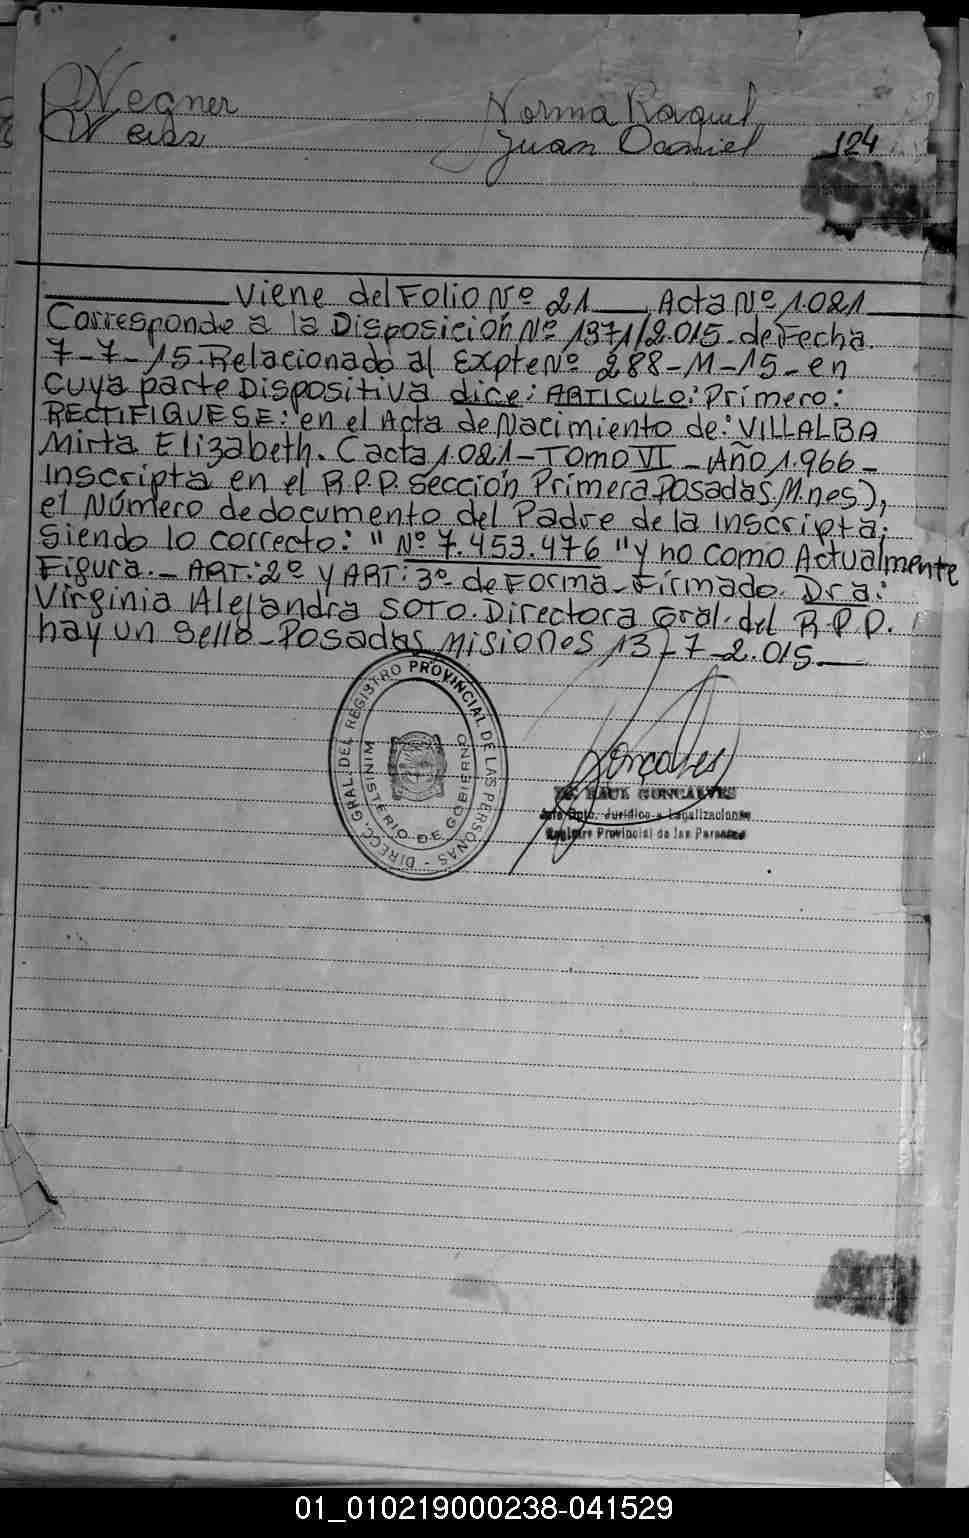 Wegner Norma Raquel
Weiss Juan Daniel 124
Viene del Folio Nº 21 , Acta Nº 1.021
Corresponde a la Disposición Nº 1371/2.015. de Fecha.
7-7-15. Relacionado al Expte Nº 288-M-15- en
cuya parte Dispositiva dice: ARTICULO: Primero:
RECTIFIQUESE: en el Acta de Nacimiento de: VILLALBA
Mirta Elizabeth. (acta 1.021-TOMO VI - Año 1.966-
Inscripta en el R.P.P. Sección Primera Posadas M.nes),
el Número de documento del Padre de la Inscripta;
siendo lo correcto: "Nº 7.453.476" y no como Actualmente
Figura.- ART: 2º y ART: 3º de Forma-Firmado. Dra:
Virginia Alejandra SOTO. Directora Gral. del R.P.P.
hay un sello-Posadas, Misiones, 13-7-2.015
DIRECC. GRAL. DEL REGISTRO PROVINCIAL DE LAS PERSONAS -
MINISTERIO DE GOBIERNO
Gonçalves
RAUL GONCALVES
Jefe Dpto. Jurídico y Legalizaciones
Registro Provincial de las Personas
01_010219000238-041529